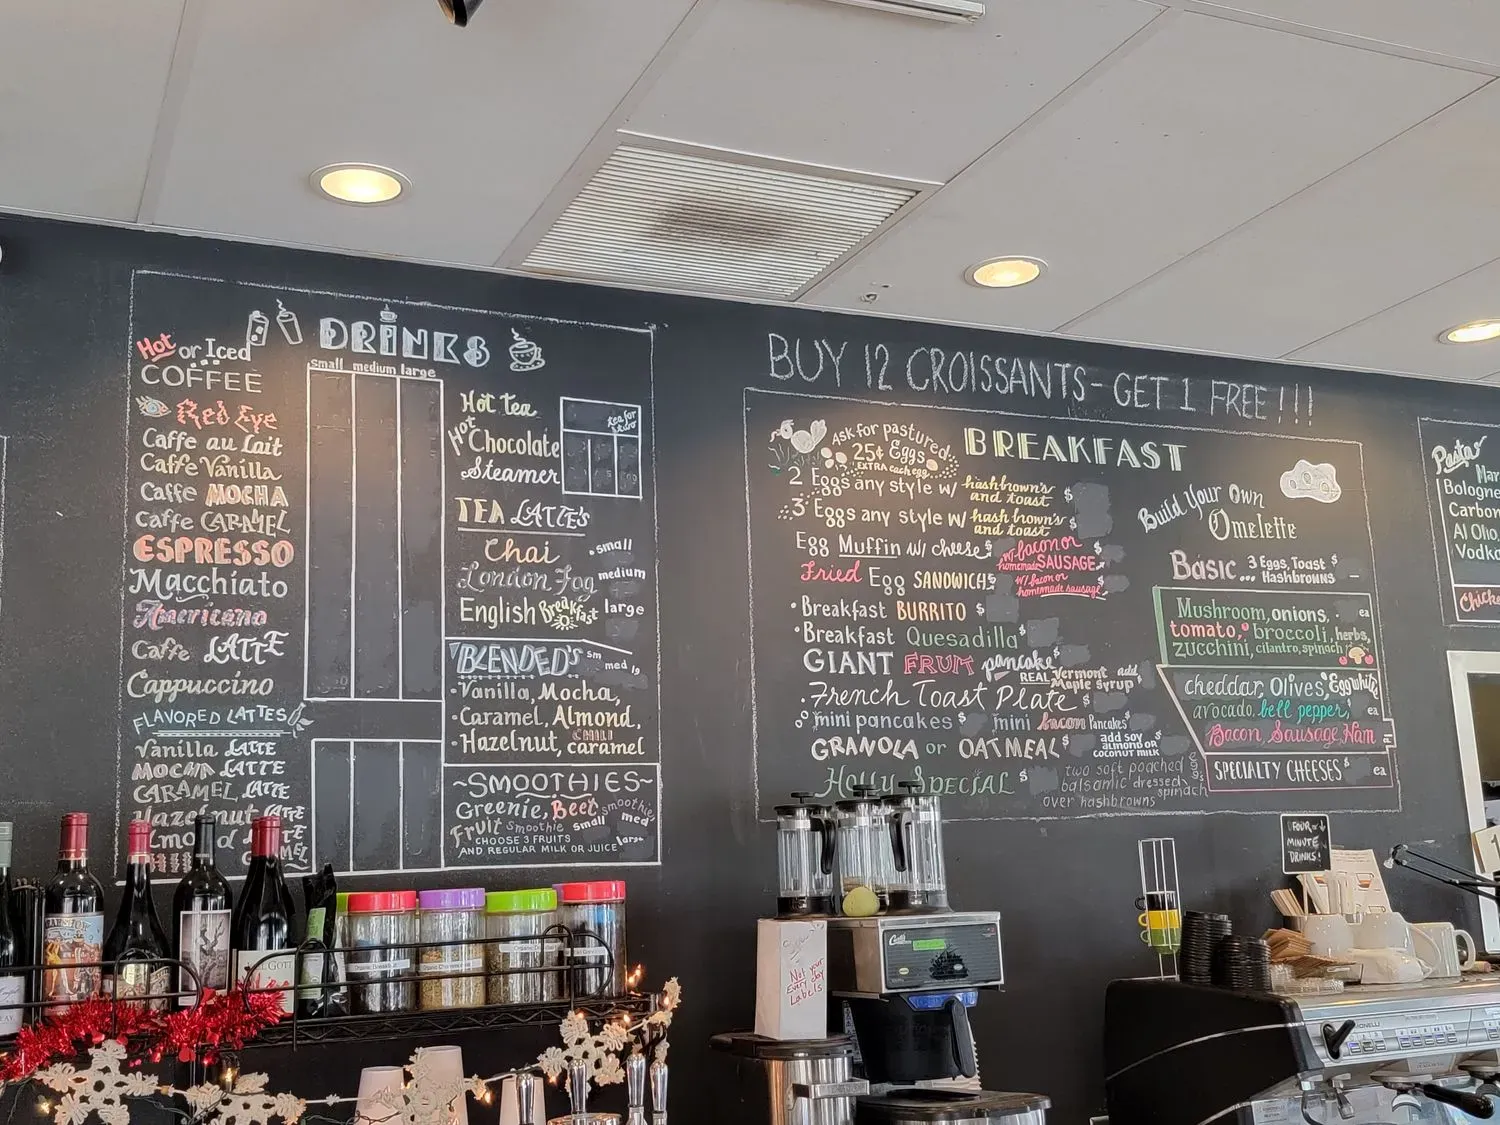 DRINKS
small medium large
Hot or Iced
COFFEE
Red Eye
Caffe au Lait
Caffe Vanilla
Caffe MOCHA
Caffe CARAMEL
ESPRESSO
Macchiato
Americano
Caffe LATTE
Cappuccino
FLAVORED LATTES
Vanilla LATTE
MOCHA LATTE
CARAMEL LATTE
Hazelnut LATTE
Almond LATTE
Hot Tea
tea for
two
Hot Chocolate
Steamer
TEA LATTE'S
Chai
London Fog
English Breakfast
small
medium
large
BLENDED'S
sm
med lg
• Vanilla, Mocha,
• Caramel, Almond,
• Hazelnut, CHILI caramel
~SMOOTHIES~
Greenie, Beet smoothie
Fruit Smoothie small med
large
CHOOSE 3 FRUITS
AND REGULAR MILK OR JUICE
BUY 12 CROISSANTS - GET 1 FREE!!!
BREAKFAST
Ask for pastured
25¢ Eggs
EXTRA each egg
2 Eggs any style w/ hashbrown's and toast $
3 Eggs any style w/ hash brown's and toast
Egg Muffin w/ cheese $
w/ bacon or
homemade SAUSAGE $
Fried Egg SANDWICH $
w/ bacon or
homemade sausage $
• Breakfast BURRITO $
• Breakfast Quesadilla $
GIANT FRUIT pancake $
REAL Vermont Maple syrup add
• French Toast Plate $
mini pancakes $ mini bacon Pancakes $
GRANOLA or OATMEAL $
add soy
almond OR
COCONUT MILK
Holly SPECIAL $
two soft poached
balsamic dressed spinach
over hashbrowns
Build Your Own
Omelette
BASIC ... 3 Eggs, Toast $
Hashbrowns
Mushroom, onions, ea
tomato, broccoli, herbs,
zucchini, cilantro, spinach
cheddar, Olives, Egg white
avocado, bell pepper, ea
Bacon, Sausage, Ham
SPECIALTY CHEESES $ ea
Pasta
Bologne
Carbon
Al Olio,
Vodka
Chick
FOUR
MINUTE
DRINKS!
Not your
Every day
Labels
Curtis